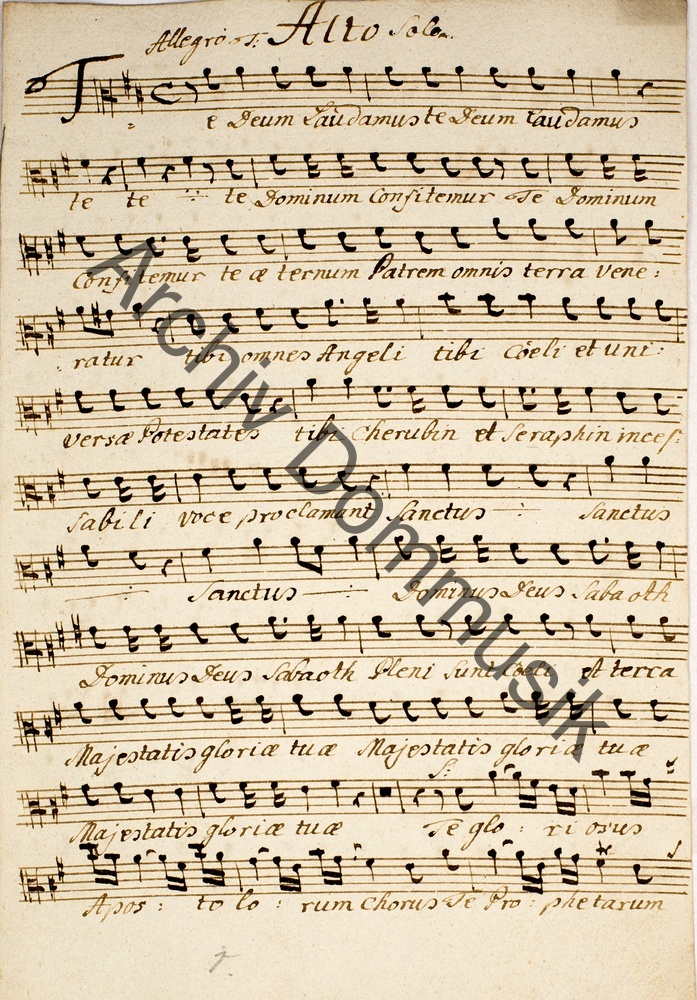 Allegro T: Alto Solo.
Te Deum Laudamus te Deum laudamus
te te te Dominum Confitemur Te Dominum
Confitemur te æ ternum Patrem omnis terra Vene:
ratur tibi omnes Angeli tibi Cœli et Uni:
versæ Potestates tibi Cherubin et Seraphin inces:
sabili voce proclamant Sanctus Sanctus
Sanctus Dominus Deus Sabaoth
Dominus Deus Sabaoth Pleni sunt Cœli et terra
Majestatis gloriæ tuæ Majestatis gloriæ tuæ
S:
Majestatis gloriæ tuæ Te glo: ri osus
Apos: to lo: rum Chorus Te Pro: phetarum
Archiv Dommusik